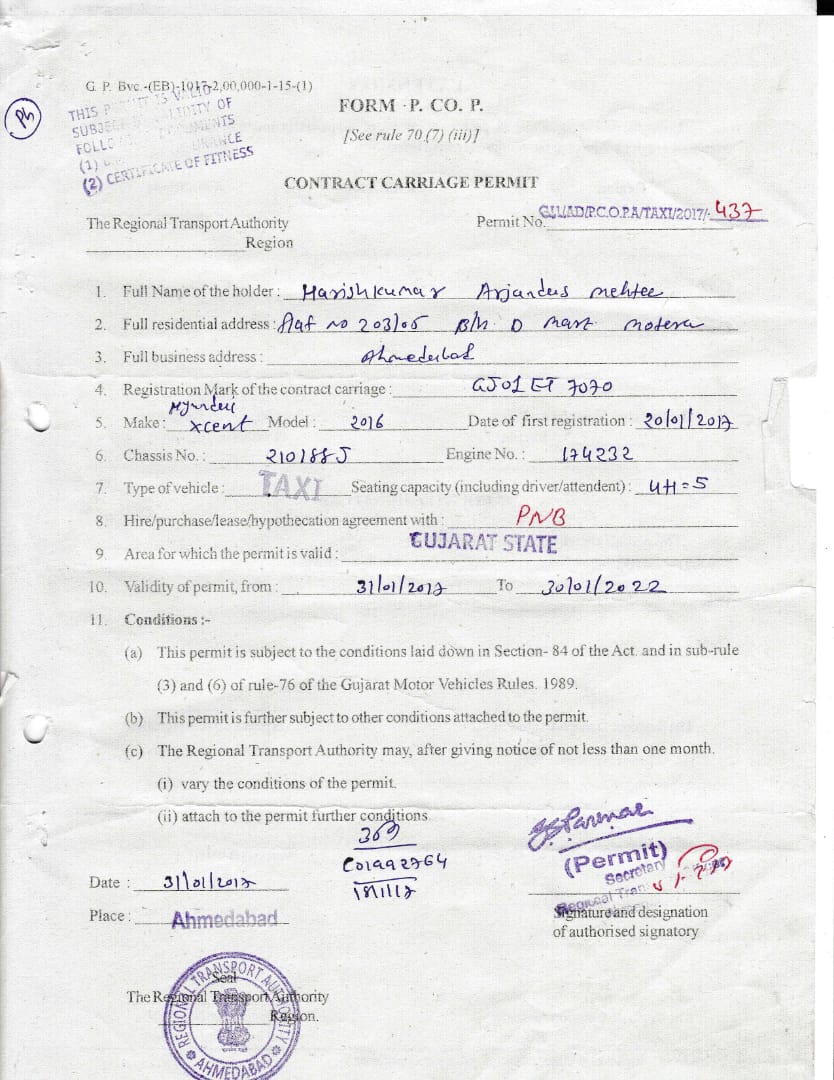 G. P. Bvc.-(EB)-1017-2,00,000-1-15-(1)
Ph
THIS P IS VALID
SUBJECT VALIDITY OF
FOLLO DOCUMENTS
(1) INSURANCE
(2) CERTIFICATE OF FITNESS
FORM P. CO. P.
[See rule 70 (7) (iii)]
CONTRACT CARRIAGE PERMIT
The Regional Transport Authority
Region
Permit No. GUJ/AD/P.C.O.P.A/TAXI/2017/- 437
1. Full Name of the holder : Harishkumar Arjandas mehta
2. Full residential address : flat no 203/05 B/h D mart motera
3. Full business address : Ahmedabad
4. Registration Mark of the contract carriage : GJ01 ET 7070
5. Make : Hyundai Xcent Model : 2016 Date of first registration : 20/01/2017
6. Chassis No. : 210188J Engine No. : 174232
7. Type of vehicle : TAXI Seating capacity (including driver/attendent) : 4+1=5
8. Hire/purchase/lease/hypothecation agreement with : PNB
9. Area for which the permit is valid : GUJARAT STATE
10. Validity of permit, from : 31/01/2017 To 30/01/2022
11. Conditions :-
(a) This permit is subject to the conditions laid down in Section- 84 of the Act. and in sub-rule
(3) and (6) of rule-76 of the Gujarat Motor Vehicles Rules. 1989.
(b) This permit is further subject to other conditions attached to the permit.
(c) The Regional Transport Authority may, after giving notice of not less than one month.
(i) vary the conditions of the permit.
(ii) attach to the permit further conditions
369
C01992764
Parmar
(Permit)
Secretary
Regional Tran
Date : 31/01/2017
Place : Ahmedabad
Signature and designation
of authorised signatory
Seal
The Regional Transport Authority
Region.
REGIONAL TRANSPORT AUTHORITY
AHMEDABAD